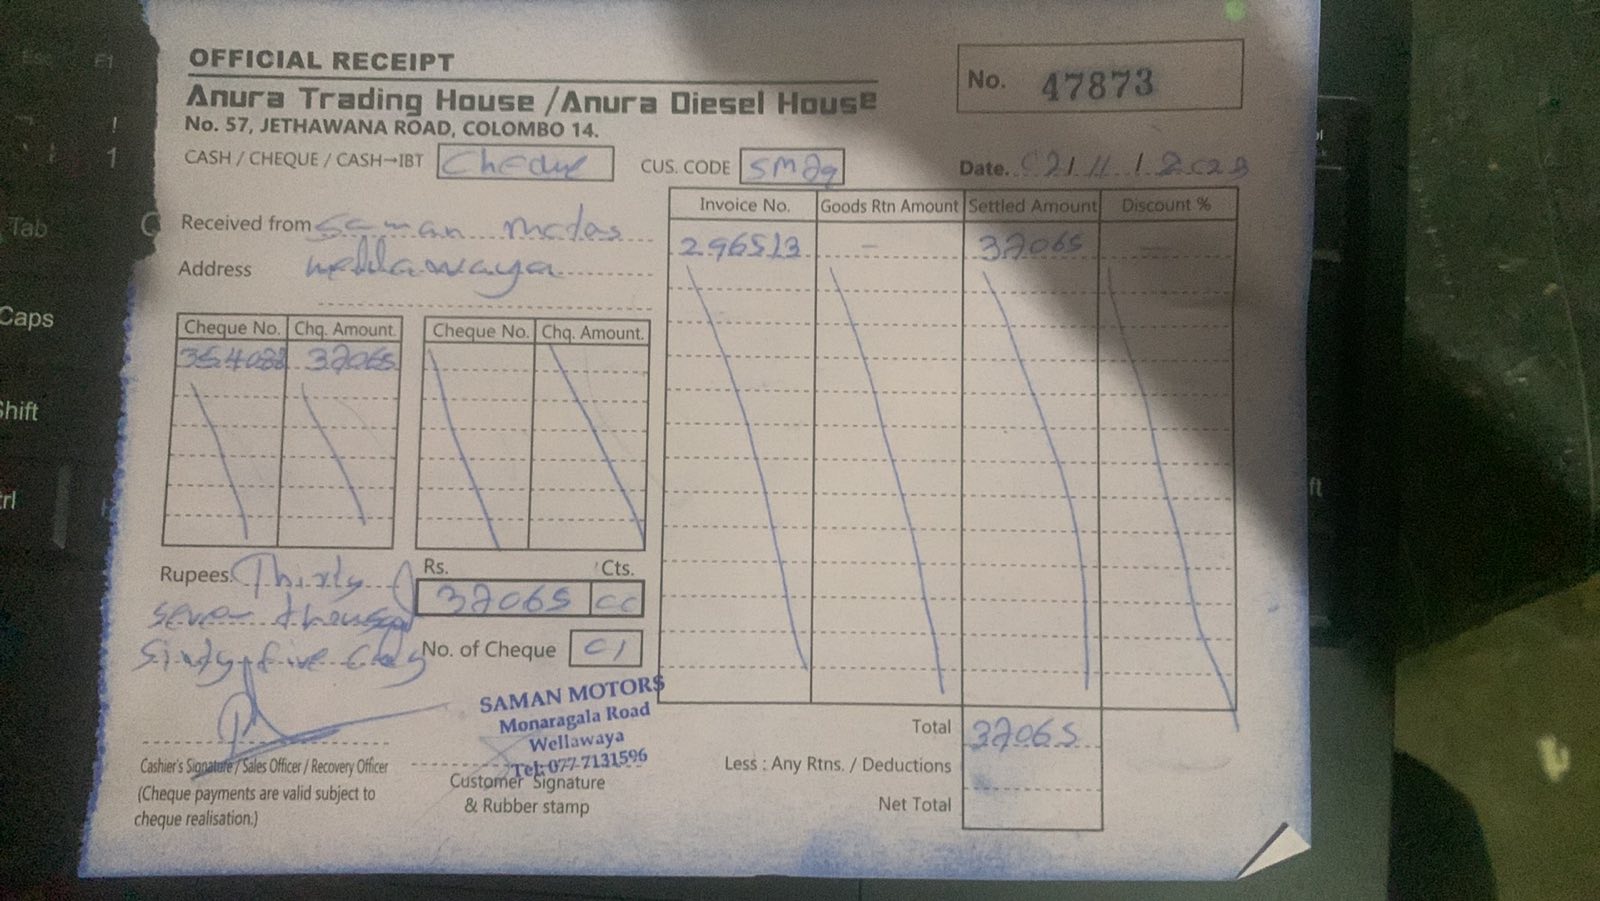 OFFICIAL RECEIPT
No. 47873
Anura Trading House / Anura Diesel House
No. 57, JETHAWANA ROAD, COLOMBO 14.
CASH / CHEQUE / CASH→IBT Cheque
CUS. CODE
Date.
Received from Saman
Address Wellawaya
Invoice No. Goods Rtn Amount Settled Amount Discount %
296513 - 37065 -
Cheque No. Chq. Amount. Cheque No. Chq. Amount.
37065
Rupees. Thirty
seven thousand
five only
Rs. Cts.
37065 00
No. of Cheque 01
SAMAN MOTORS
Monaragala Road
Wellawaya
Tel: 077-7131596
Cashier's Signature / Sales Officer / Recovery Officer
(Cheque payments are valid subject to
cheque realisation.)
Customer Signature
& Rubber stamp
Total 37065
Less : Any Rtns. / Deductions
Net Total
Tab
Caps
Shift